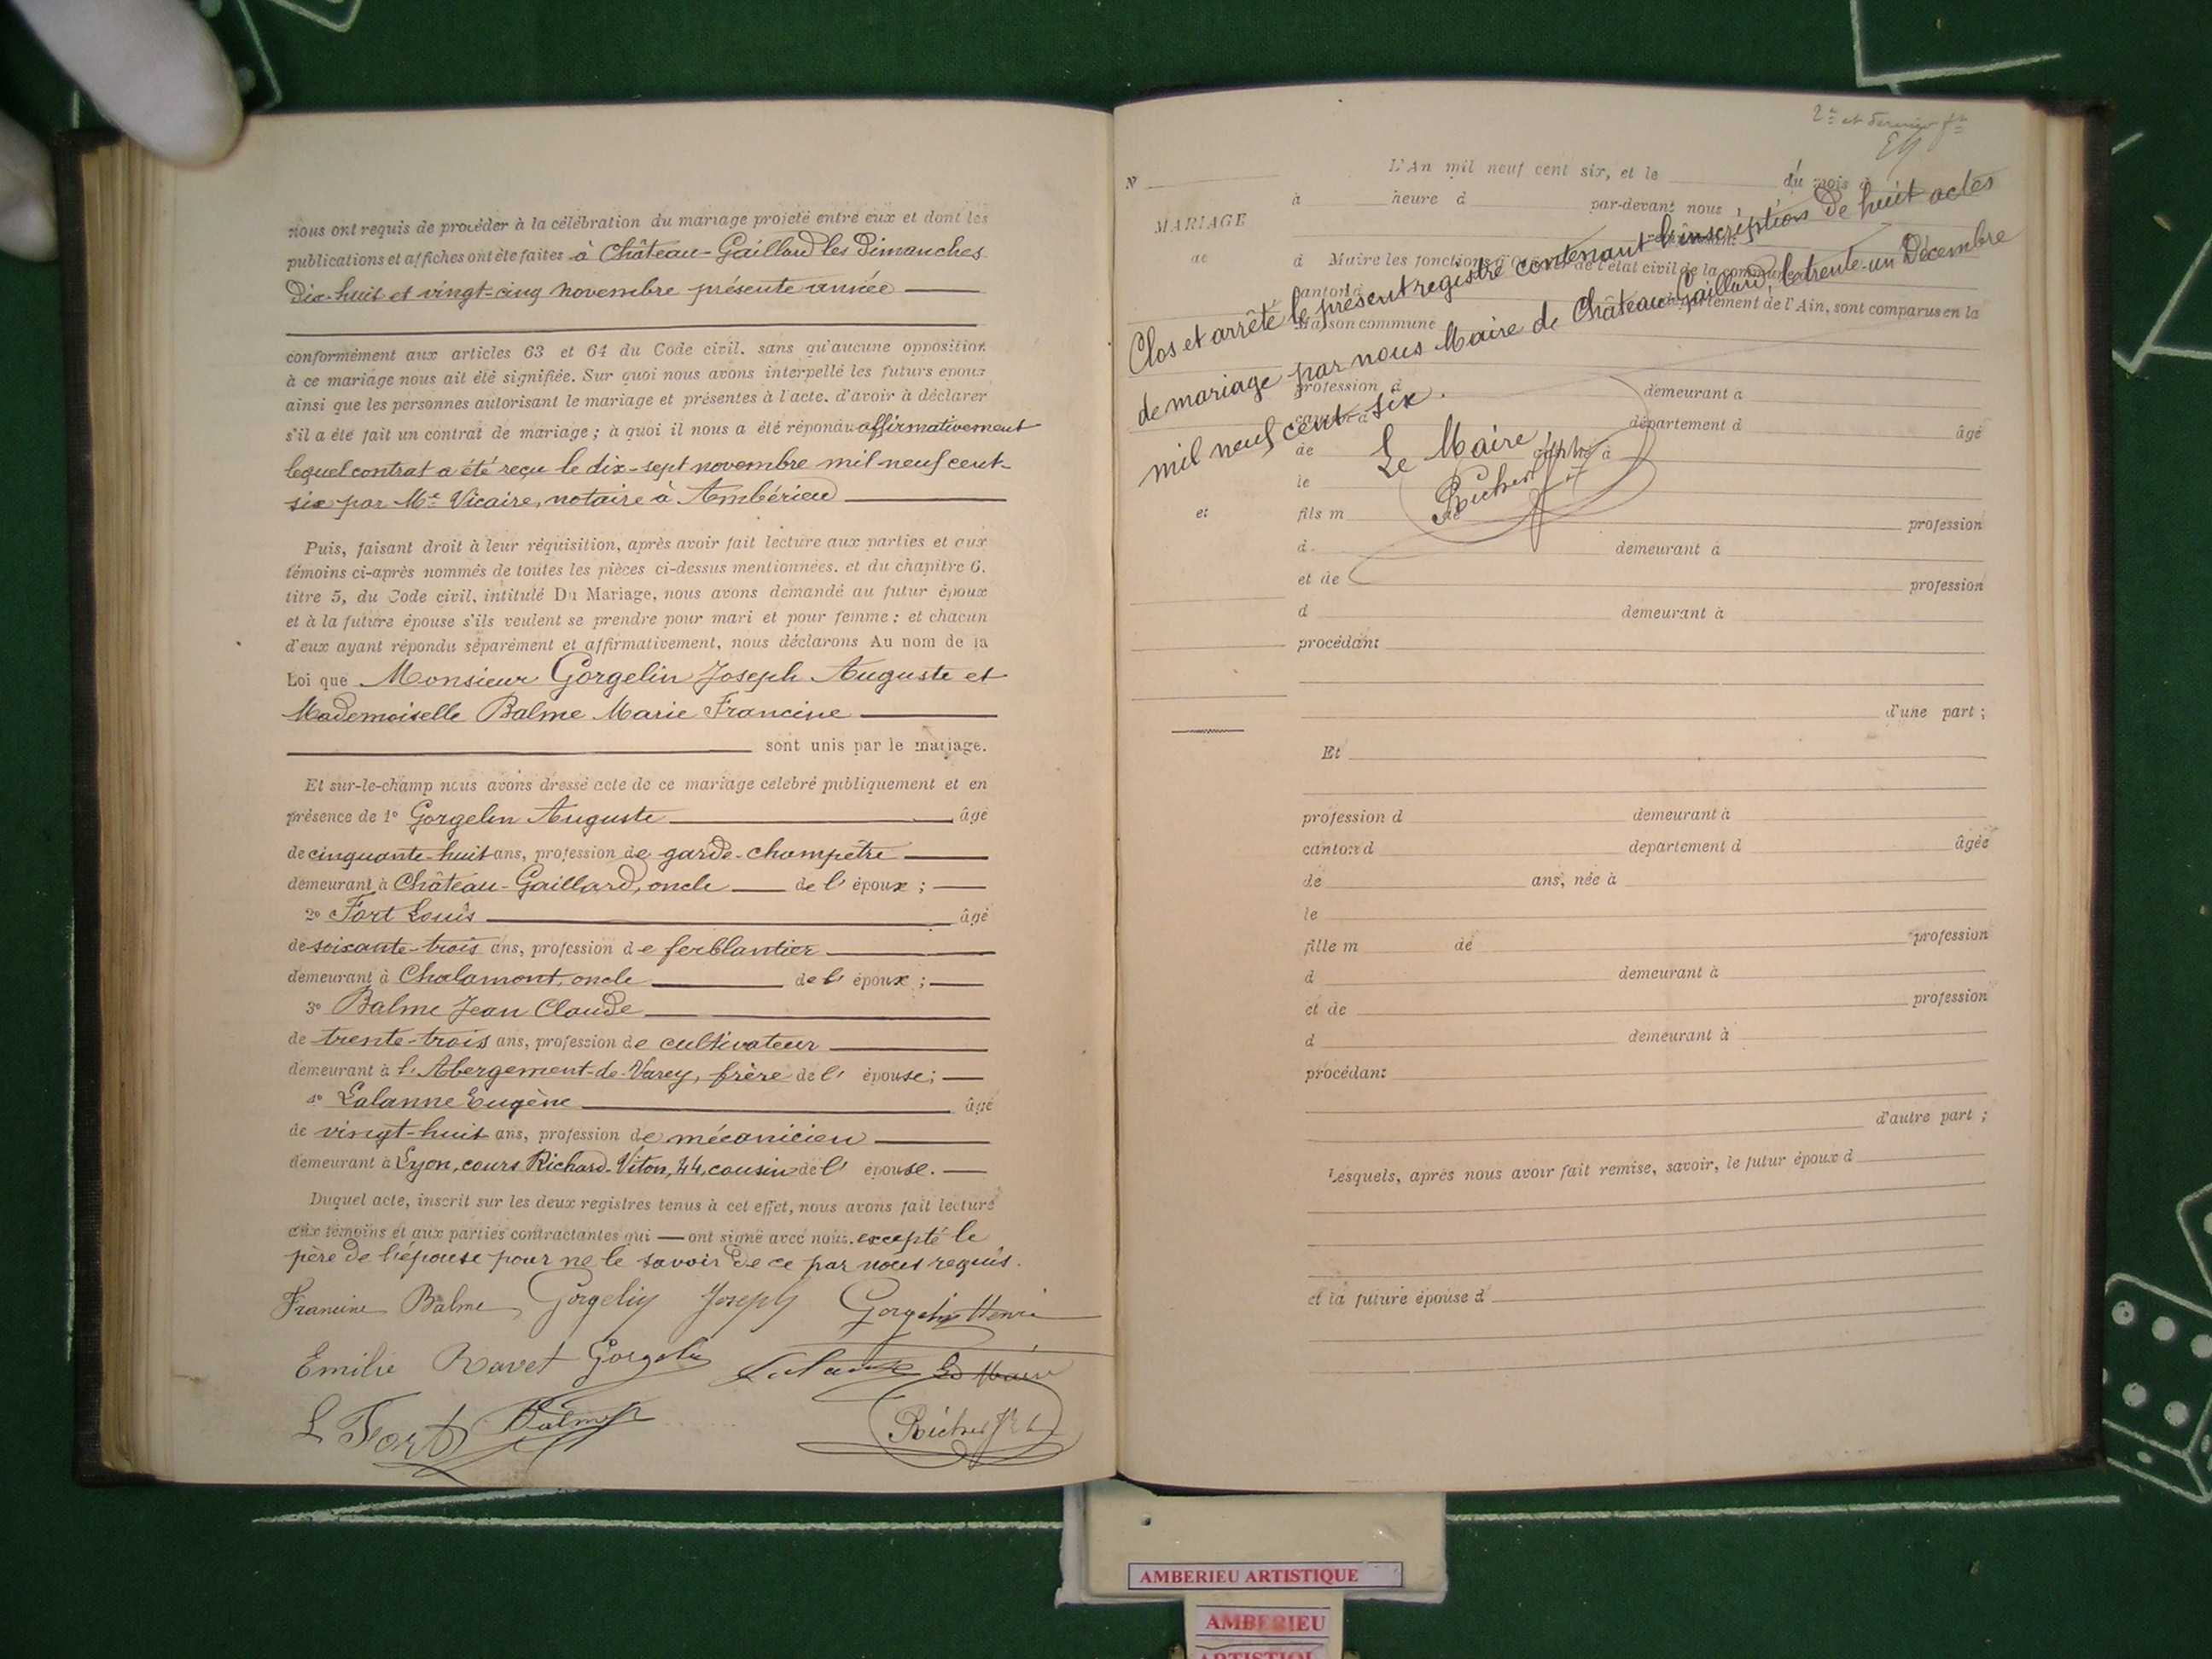 nous ont requis de procéder à la célébration du mariage projeté entre eux et dont les
publications et affiches ont été faites à Château-Gaillard les Dimanches
Dix-huit et vingt-cinq novembre présente année
conformément aux articles 63 et 64 du Code civil. sans qu'aucune opposition
à ce mariage nous ait été signifiée. Sur quoi nous avons interpellé les futurs époux
ainsi que les personnes autorisant le mariage et présentes à l'acte. d'avoir à déclarer
s'il a été fait un contrat de mariage ; à quoi il nous a été répondu affirmativement
lequel contrat a été reçu le dix-sept novembre mil-neuf cent-
six par Me Vicaire, notaire à Ambérieu
Puis, faisant droit à leur réquisition, après avoir fait lecture aux parties et aux
témoins ci-après nommés de toutes les pièces ci-dessus mentionnées. et du chapitre 6.
titre 5, du Code civil, intitulé Du Mariage, nous avons demandé au futur époux
et à la future épouse s'ils veulent se prendre pour mari et pour femme ; et chacun
d'eux ayant répondu séparément et affirmativement, nous déclarons Au nom de la
Loi que Monsieur Gorgelin Joseph Auguste et
Mademoiselle Balme Marie Francine
sont unis par le mariage.
Et sur-le-champ nous avons dressé acte de ce mariage célébré publiquement et en
présence de 1o Gorgelin Auguste âgé
de cinquante-huit ans, profession de garde-champêtre
demeurant à Château-Gaillard, oncle de l' époux ;
2o Fort Louis âgé
de soixante-trois ans, profession de ferblantier
demeurant à Chalamont, oncle de l' époux ;
3o Balme Jean Claude
de trente-trois ans, profession de cultivateur
demeurant à l'Abergement-de-Varey, frère de l' épouse ;
4o Lalanne Eugène âgé
de vingt-huit ans, profession de mécanicien
demeurant à Lyon, cours Richard-Viton, 44, cousin de l' épouse.
Duquel acte, inscrit sur les deux registres tenus à cet effet, nous avons fait lecture
aux témoins et aux parties contractantes qui ont signé avec nous. excepté le
père de l'épouse pour ne le savoir de ce par nous requis.
Francine Balme Gorgelin Joseph Gorgelin Henri
Emilie Ravet Gorgelin Lalanne Le Maire
L Fort Balme
2e et dernier
No
L'An mil neuf cent six, et le du mois d
à heure d par-devant nous
MARIAGE
de
d Maire les fonctions d'officier de l'état civil de la commune
canton d département de l'Ain, sont comparus en la
Maison commune
Clos et arrêté le présent registre contenant l'inscription de huit actes
de mariage par nous Maire de Château-Gaillard, le trente-un Décembre
mil neuf cent six.
Le Maire
profession d demeurant à
canton d département d âgé
de
le
et
fils m de profession
d demeurant à
et de profession
d demeurant à
procédant
d'une part ;
Et
profession d demeurant à
canton d département d âgée
de ans, née à
le
fille m de profession
d demeurant à
et de profession
d demeurant à
procédant
d'autre part ;
Lesquels, après nous avoir fait remise, savoir, le futur époux d
et la future épouse d
AMBERIEU ARTISTIQUE
AMBERIEU
ARTISTIQUE